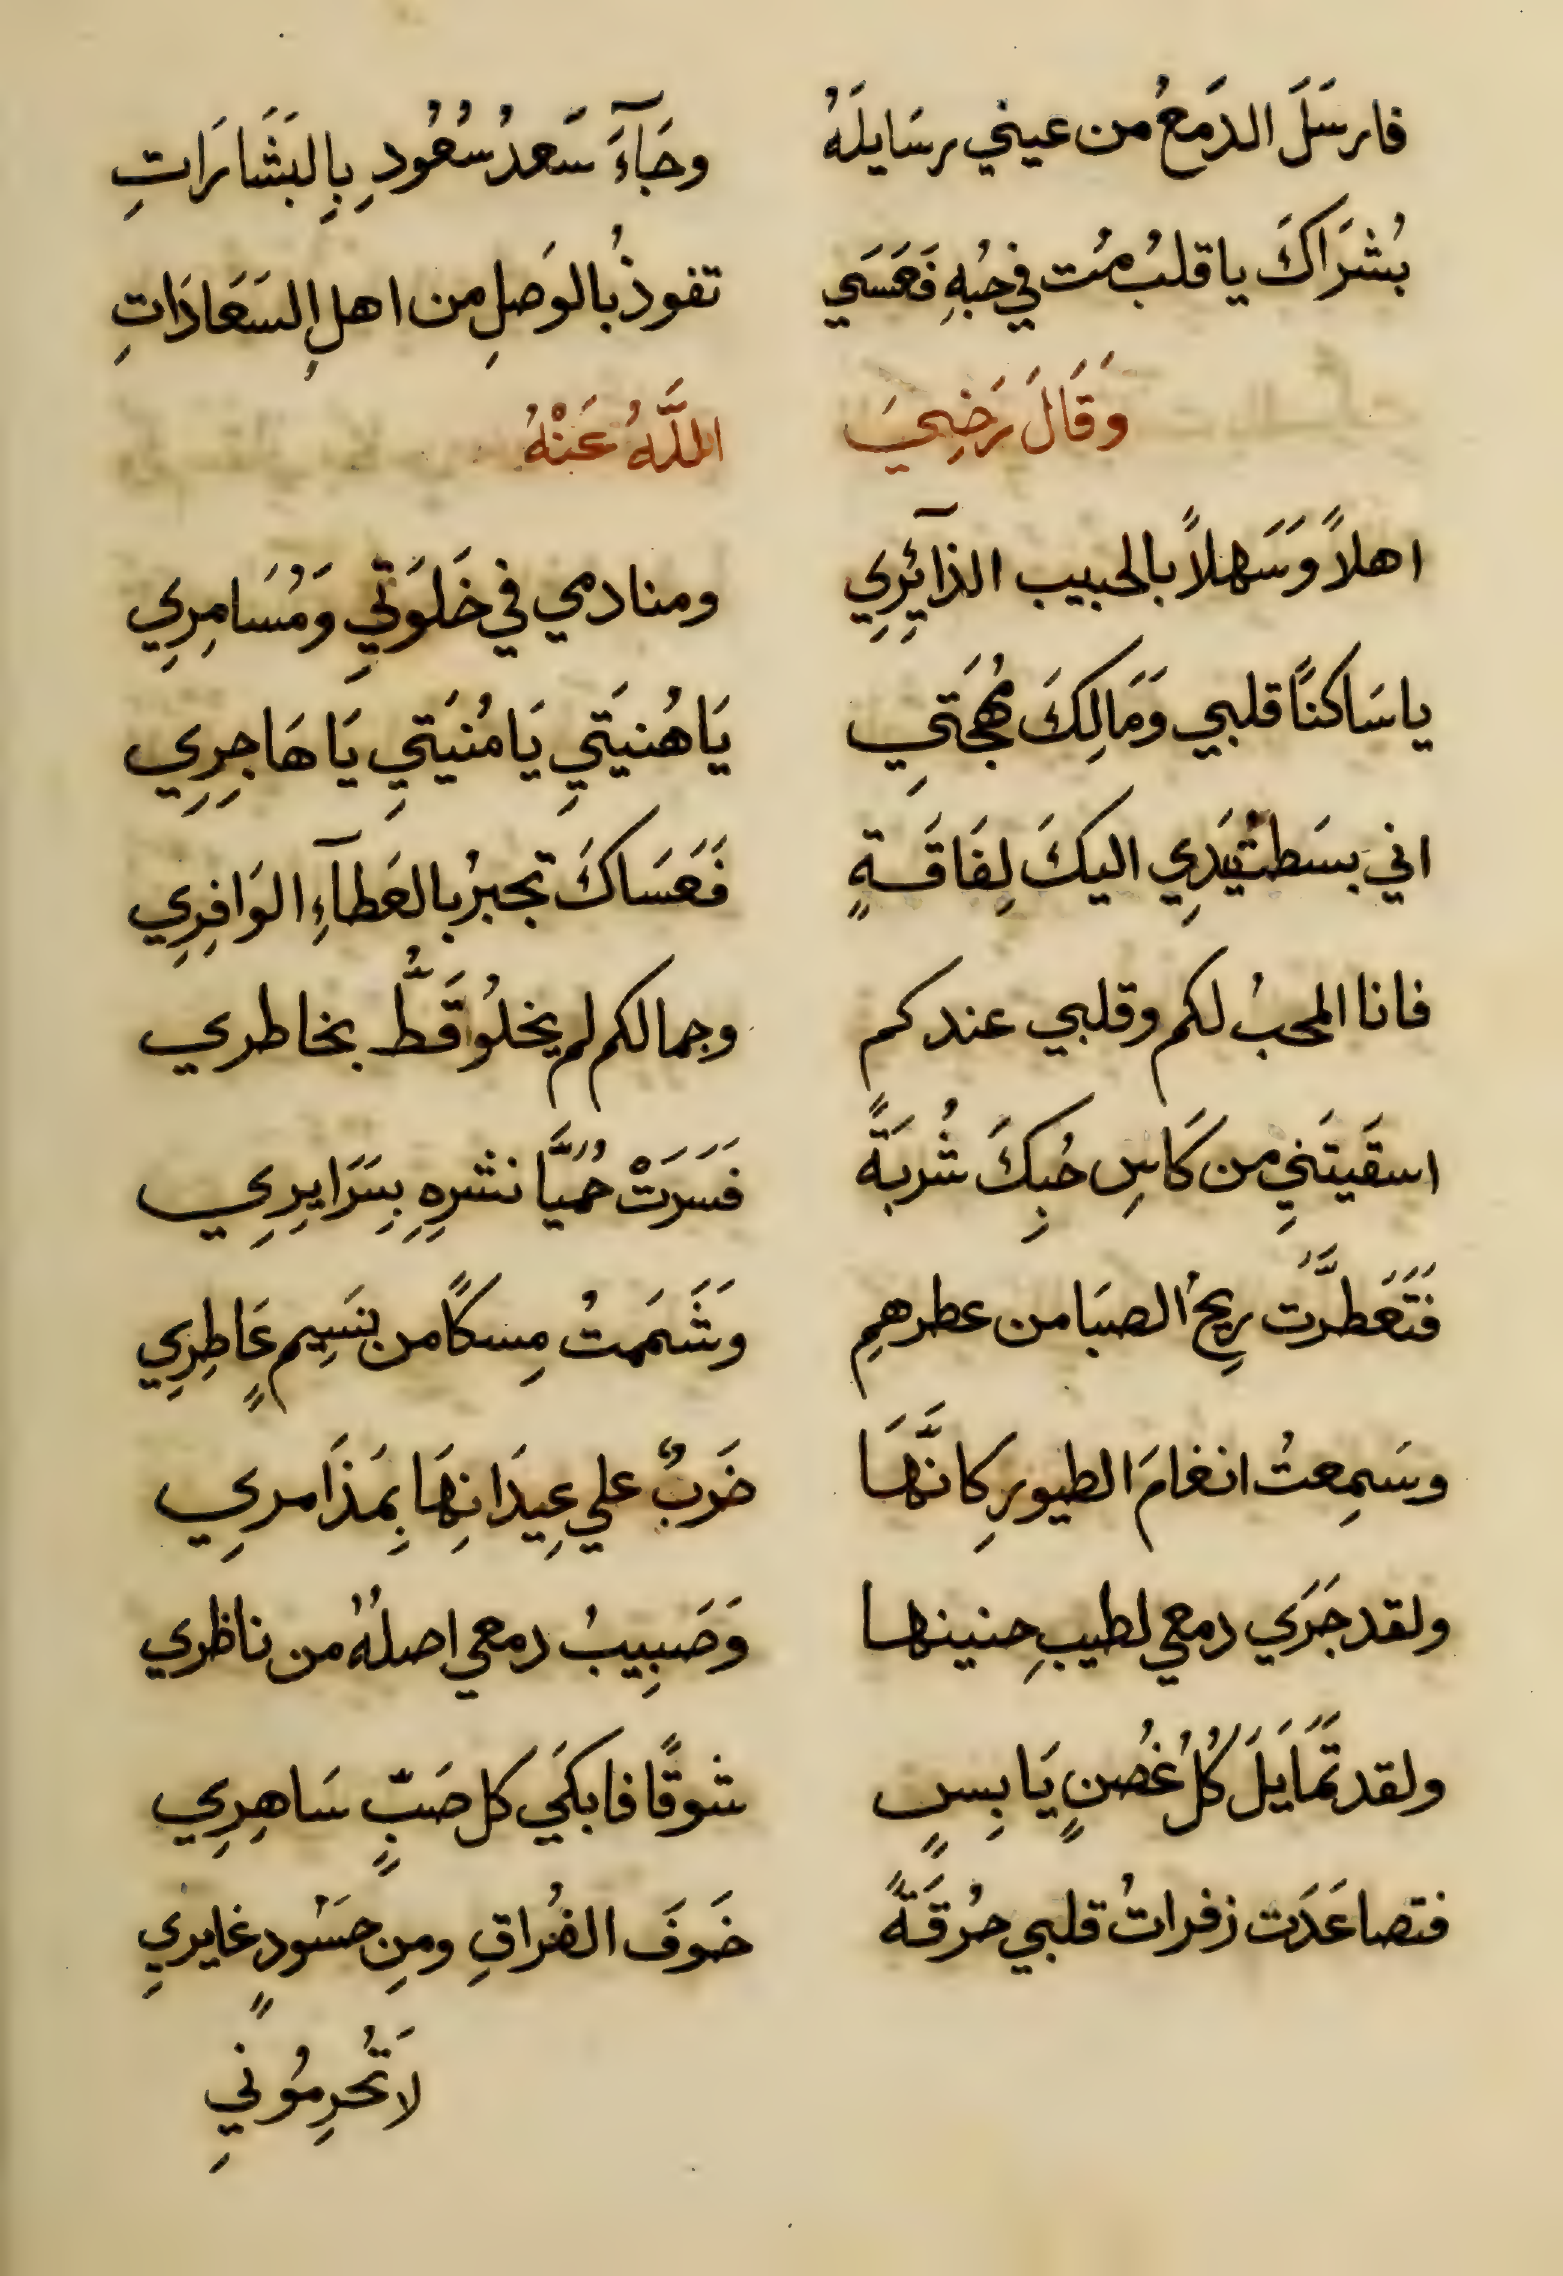 فارسَلَ الدَمعُ من عيني رسَايلَهُ وجَآءَ سَعدُ سُعُودِ بِالبَشَارَاتِ
بُشرَاكَ يا قلبُ مُت في حُبهِ فَعَسَي تفوذُ بالوَصلِ من اهلِ السَعَادَاتِ
وَقَالَ رَضِيَ اللَّهُ عَنْهُ
اهلاً وَسَهلاً بالحبيب الذآئِرِي ومنادمي في خَلوَتيِ وَمُسَامِرِي
ياسَاكنًا قلبي وَمَالِكَ مُهجَتيِ يَا هُنيَتيِ يَا مُنيَتيِ يَا هَاجِرِي
اني بسَطتُ يَدِي اليكَ لِفَاقَةٍ فَعَسَاكَ تجبرُ بالعَطآءِ الوَافِرِي
فانا المحبُ لكم وقلبي عندكم وجمالكم لم يخلُو قَطُّ بخاطري
اسقَيتَنيِ من كَاسِ حُبِكَ شُربَةً فَسَرَتْ حُمَيَّا نشرِهِ بِسَرَايرِي
فَتَعَطَّرَت رِيحُ الصبَا من عطرهمِ وَشَمَمتُ مِسكًا من نسَيِمٍ عَاطِرِي
وسَمِعتُ انغامَ الطيورِ كانَّهَا ضَربٌ علي عِيدَانِهَا بِمَذَامرِي
ولقد جَرَي دمعي لطيبِ حنينها وَصَبِيبُ دمعي اصلُهُ من ناظري
ولقد تمَايَلَ كُلُ غُصنٍ يَابِسٍ شوقًا فابكَي كل صَبٍّ سَاهِرِي
فتصاعَدَت زفراتُ قلبي حُرقَةً خَوفَ الفُراقِ ومِن حسَودٍ غايرِي
لَا تُحرِمُونيِ